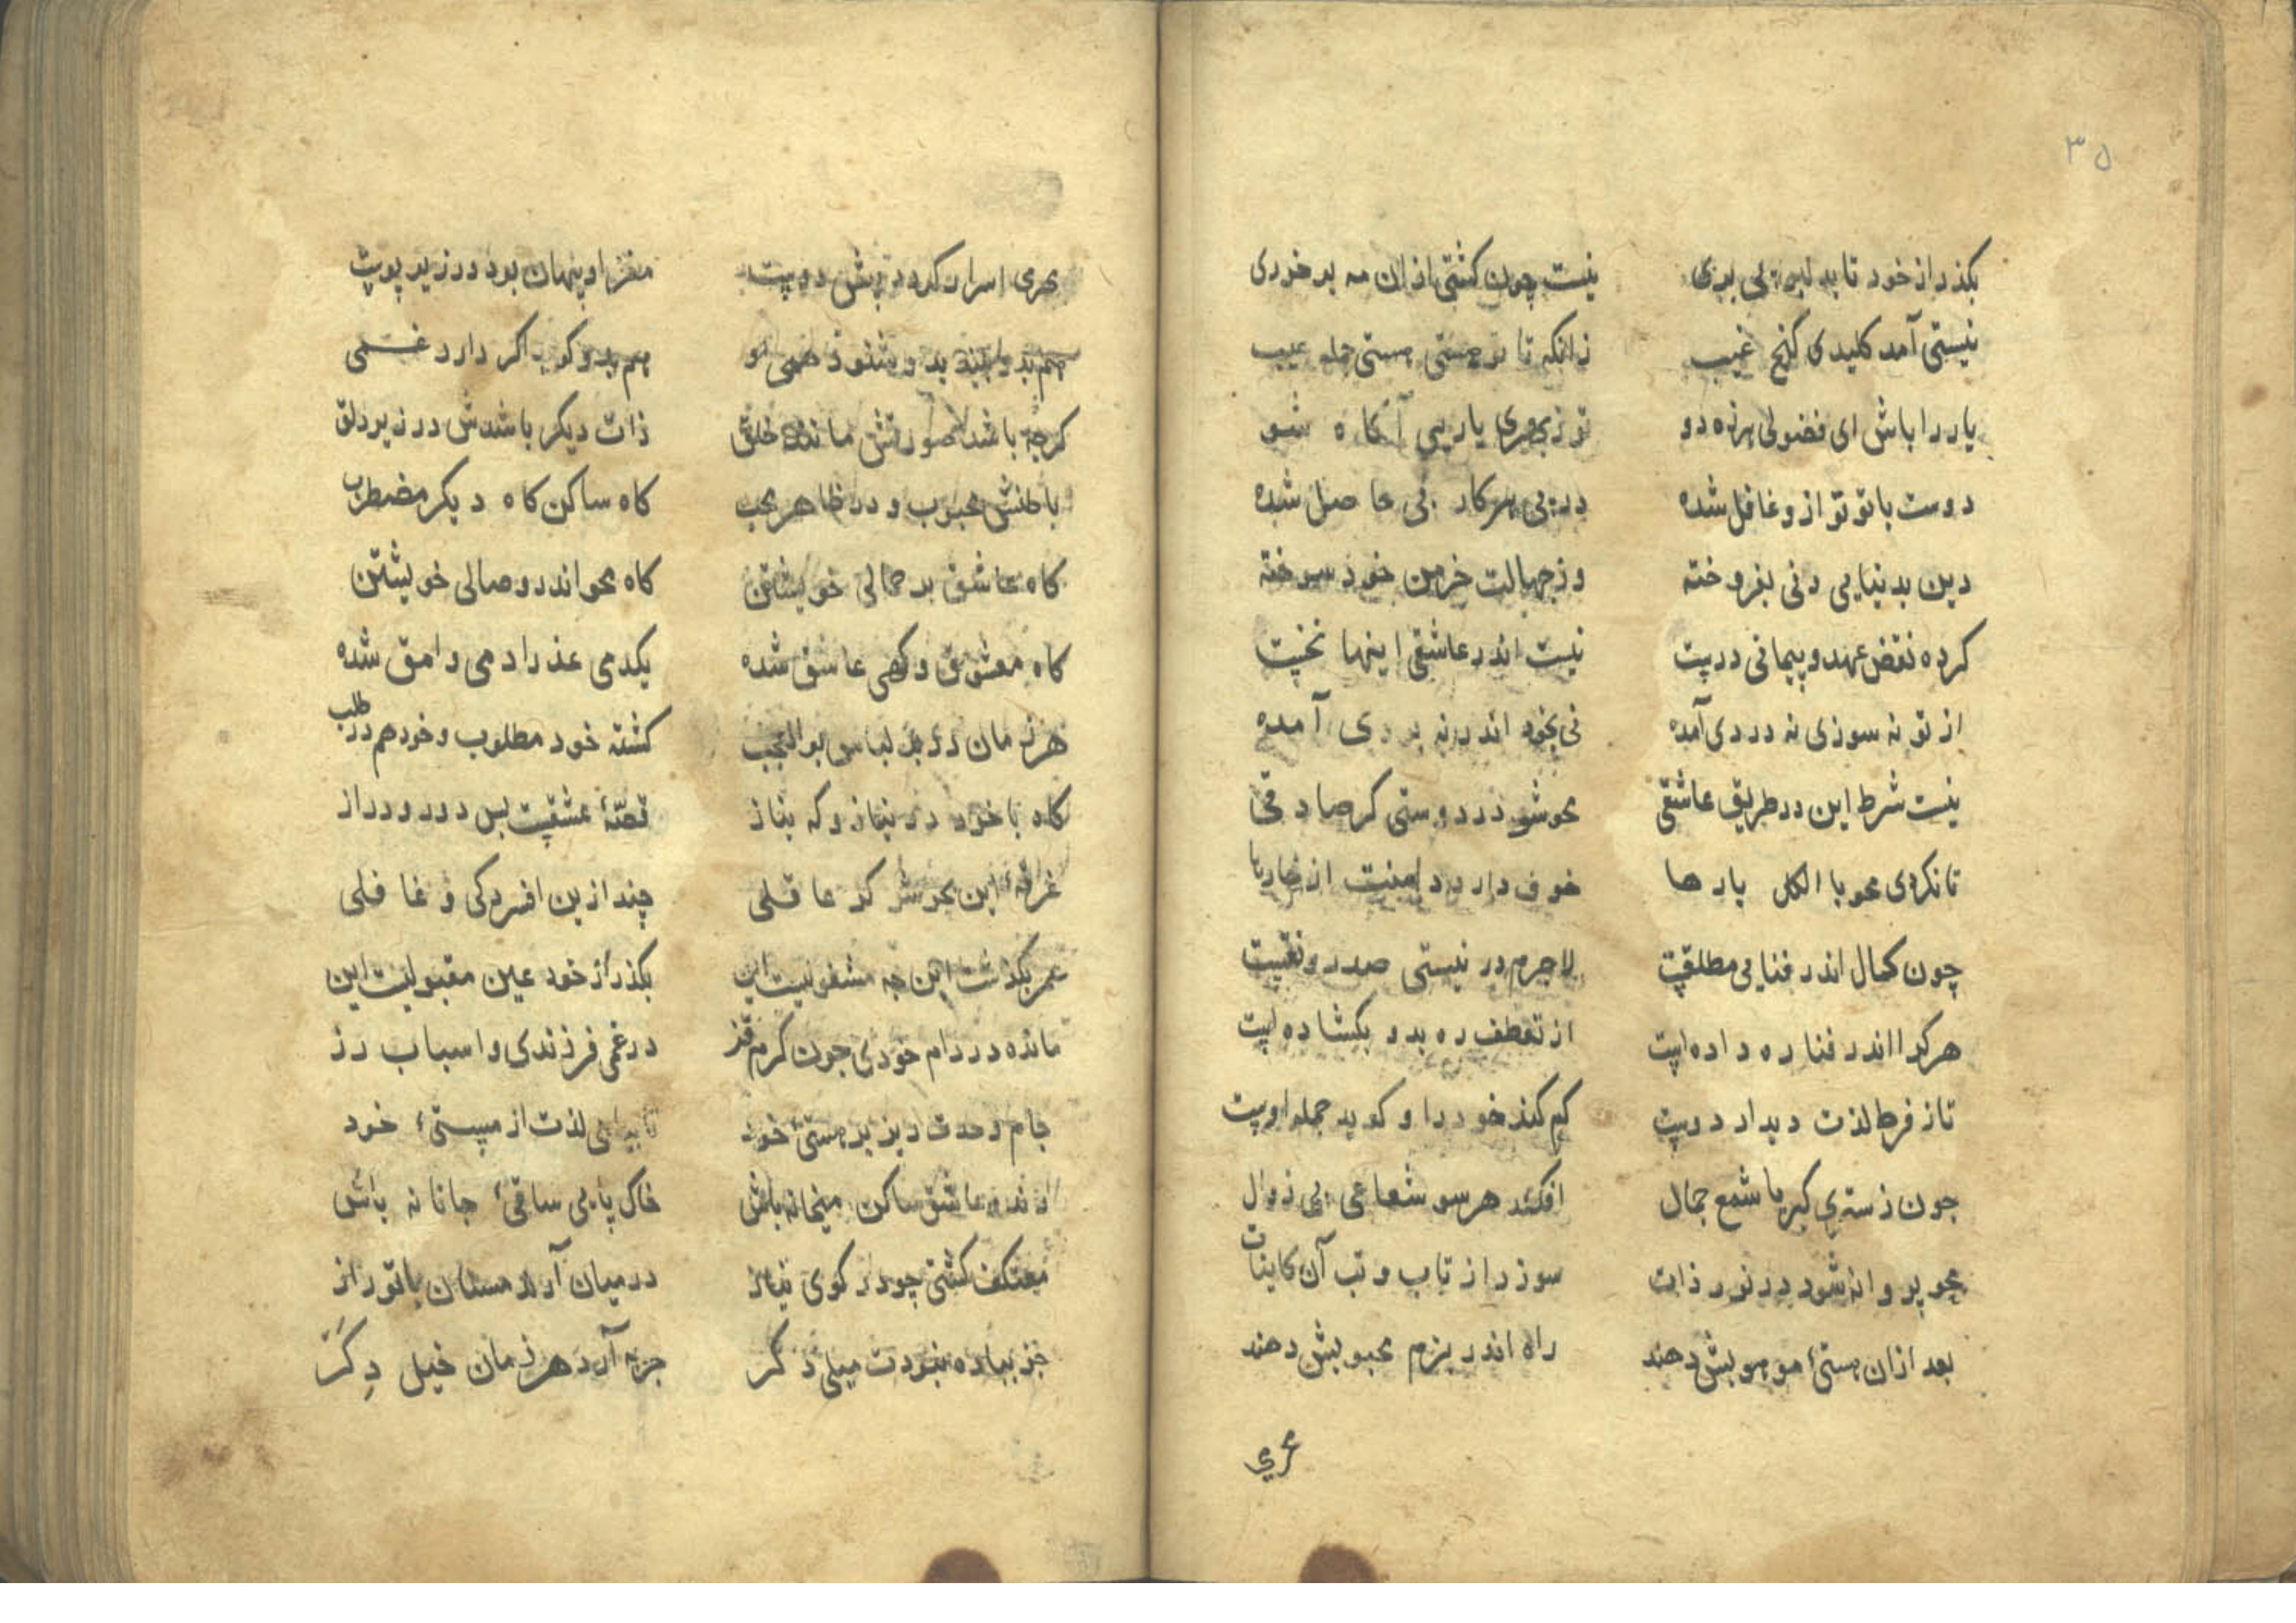 ۳۵
بکذر از خود تا بد لبر پی بری نیست چون کشتی ازان مه بر خوری
نیستی آمد کلیدی کنج غیب زانکه تا تو هستی هستی جمله عیب
یار را باش ای فضولی هرزه دو تو ز یاریی آکاه شو
دوست با تو تو از و غافل شده در پی هر کار بی حاصل شده
دین بدنیایی دنی بفروخته وز جهالت خرمن خود سوخته
کرده نقض عهد و پیمانی درست نیست اندر عاشقی اینها نخست
از تو نه سوزی نه دردی آمده نی بخود اندر نه آمده
نیست شرط این در طریق عاشقی محو شو در دوستی کر صادقی
تا نکردی محو با الکل یار ها خوف دارد دامنت از خار ها
چون کمال اندر فنایی مطلقست لاجرم در نیستی صد رونقست
هر کرا اندر فنا ره داده است از تعطف ره بدو بکشاده است
تا ز فرط لذت دیدار دوست کم کند خود را و کوید جمله اوست
چون ز ستری کبریا شمع جمال افکند هر سو شعاعی بی زوال
محو پروانه شود در نور ذات سوزد از تاب و تب آن کاینات
بعد ازان هستیٔ موهوبش دهند راه اندر بزم محبوبش دهند
اسرار کردد دوست مغز او پنهان بود در زیر پوست
هم بدو بیند بدو شنود همی هم بدو کوید اکر دارد غمی
کرچه باشد صورتش مانند خلق ذات دیکر باشدش در زیر دلق
باطنش محبوب و در ظاهر محب کاه ساکن کاه دیکر مضطرب
کاه عاشق بر جمالی خویشتن کاه محو اندر وصالی خویشتن
کاه معشوق و کهی عاشق شده یکدمی عذرا دمی وامق شده
هر زمان در لباس بوالعجب کشته خود مطلوب و خود هم در طلب
کاه با خود در نیاز و که بناز قصّهٔ عشقست بس دور و دراز
غرقهٔ این بحر شو کر عاقلی چند ازین افسردکی و غافلی
عمر بکذشت این چه مشغولیست این بکذر از خود عین مقبولیست این
مانده در دام خودی چون کرم قز در غمی فرزندی و اسباب رز
جام وحدت ریز بر هستیٔ خود لذت از مستیٔ خود
رند و عاشق ساکن میخانه باش خاک پایی ساقیٔ جانانه باش
معتکف کشتی چو در کوی نیاز در میان آرند مستان با تو راز
جز بباده نبودت میلی دکر جزبه آرد هر زمان خیل دِکَر